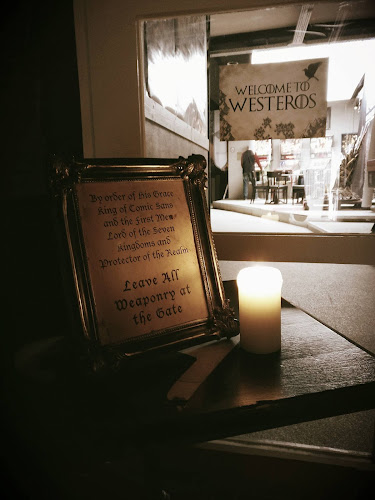 WELCOME TO
WESTEROS
By order of His Grace
King of Comic Sans
and the First Meme
Lord of the Seven
Kingdoms and
Protector of the Realm
Leave All
Weaponry at
the Gate